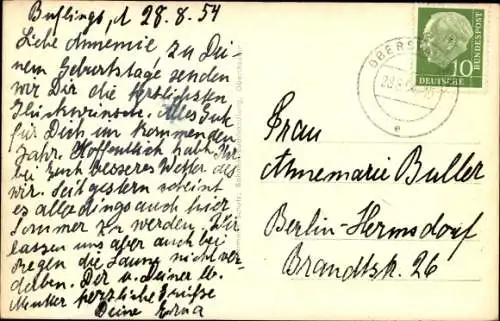 Buflings, d 28.8.54
Liebe Annemie zu Dei-
nem Geburtstage senden
wir Dir die herzlichsten
Glückwünsche. Alles Gute
für Dich im kommenden
Jahr. Hoffentlich habt Ihr
bei Euch besseres Wetter als
wir. Seit gestern scheint
es allerdings auch hier
Sommer zu werden. Wir
lassen uns aber auch bei
Regen die Laune nicht ver-
derben. Der u. Deiner lb.
Mutter herzliche Grüße
Deine Erna
DEUTSCHE
BUNDESPOST
10
Frau
Annemarie Buller
Berlin-Hermsdorf
Brandtstr. 26